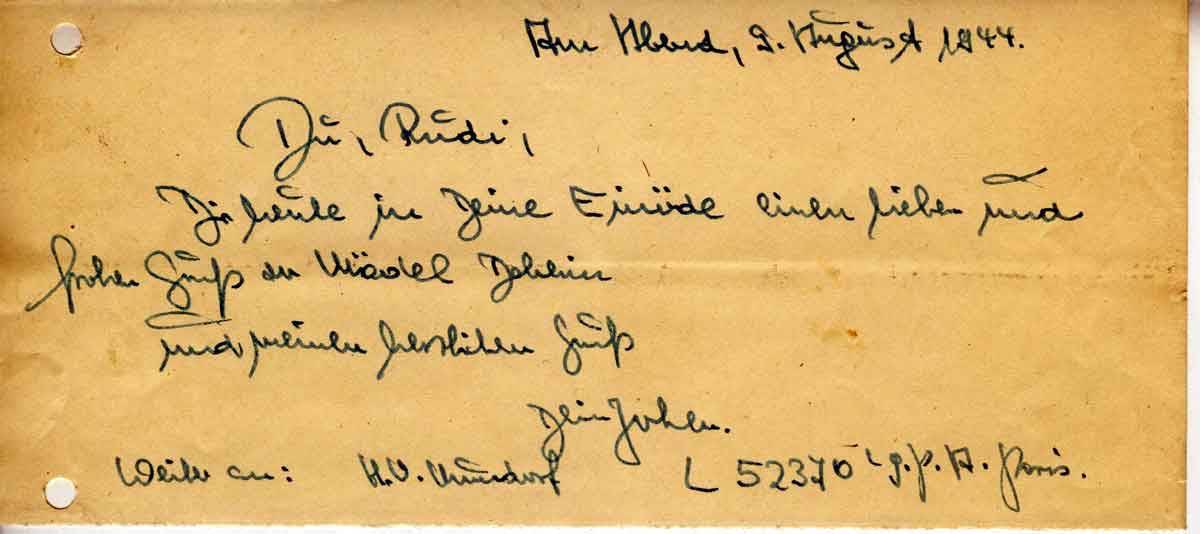 Am Abend, 9. August 1944.
Du, Rudi,
Dir heute in Deine Einöde einen lieben und
frohen Gruß an Mädel Daheim
und meinen herzlichen Gruß
Dein Jochen.
Weiter an: L 52370 L.g.P.A. Paris.